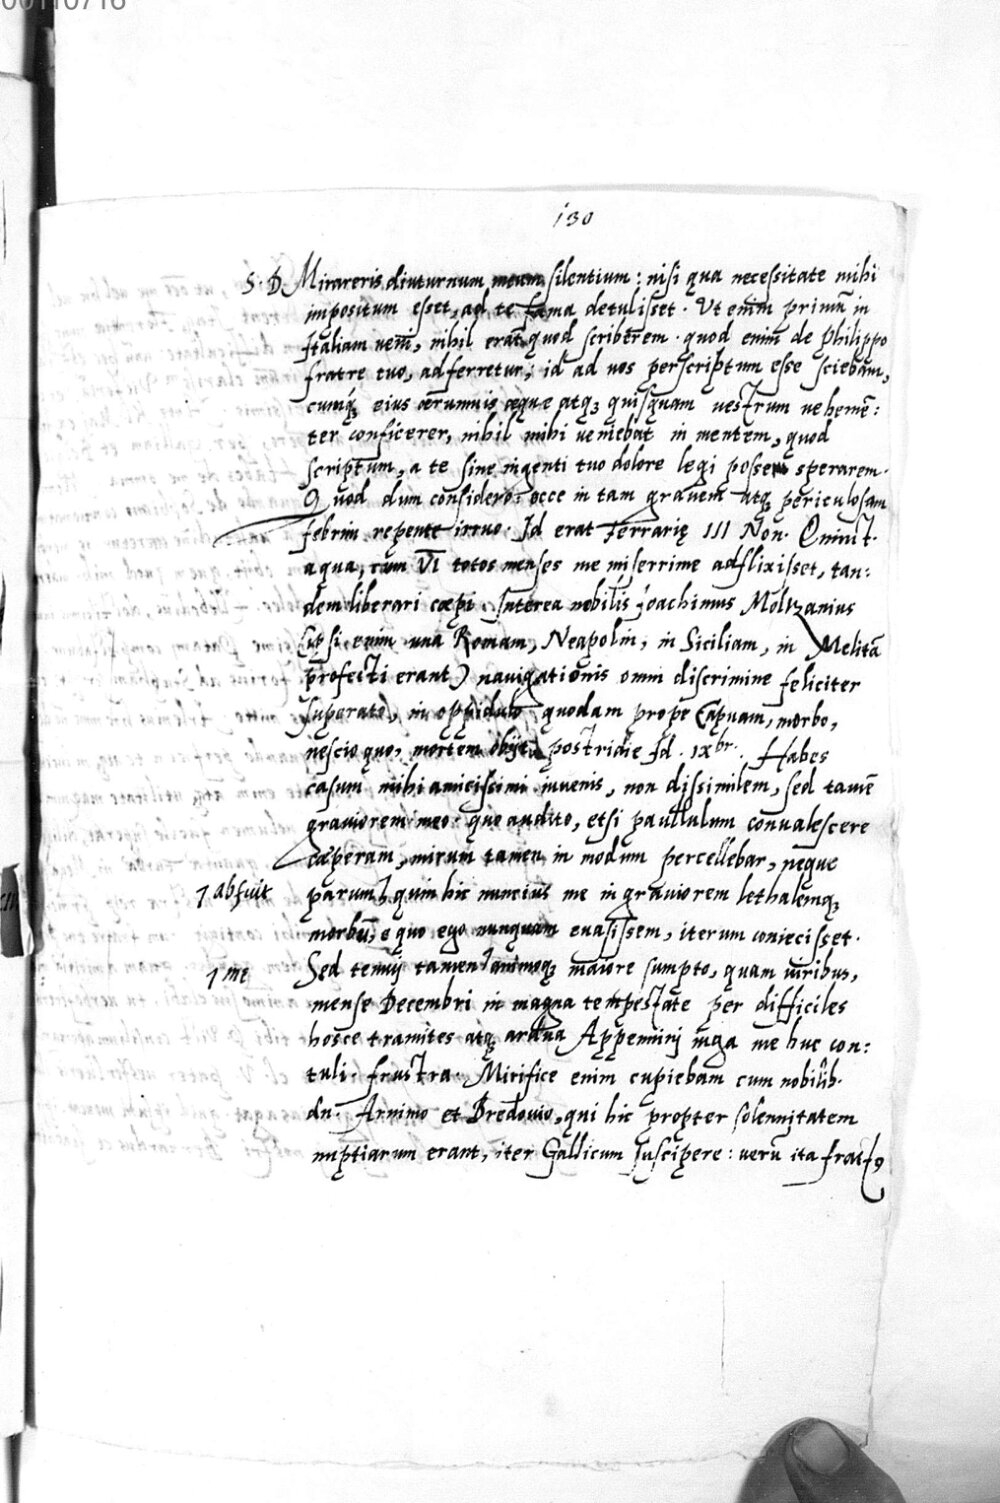 00110716
130
S. D. Mirareris diuturnum meum silentium: nisi qua necessitate mihi
impositum esset, ad te fama detulisset. Ut enim primū in
Italiam venī, nihil erat quod scriberem. quod enim de Philippo
fratre tuo, adferretur, id ad vos perscriptum esse sciebam,
cumq́ʒ eius ærumnis æque atqʒ quisquam vestrum vehemē:
ter conficerer, nihil mihi veniebat in mentem, quod
scriptum, a te sine ingenti tuo dolore legi posse sperarem.
Quod dum considero: ecce in tam gravem atqʒ periculosam
febrim repente irruo. Id erat Ferrarię III Non. Quinit.
a qua, cum VI totos menses me miserrime adflixisset, tan:
dem liberari cœpi. Interea nobilis Joachimus Moltzanius
(ipsi enim una Romam, Neapolin, in Siciliam, in Melitā
profecti erant) navigationis omni discrimine feliciter
superato, in oppidulo quodam prope Capuam, morbo,
nescio quo, mortem obijt postridie Id. IXbr. Habes
casum mihi amicissimi iuvenis, non dissimilem, sed tamē
graviorem meo. quo audito, etsi paullulum convalescere
cœperam, mirum tamen in modum percellebar, neque
⁊ abfuit
parum⁊, quin hic nuncius me in graviorem lethalemqʒ
morbū, e quo ego nunquam evasissem, iterum coniecisset.
⁊ me
Sed tenuj tamen⁊ animoqʒ maiore sumpto, quam viribus,
mense Decembri in magna tempestate per difficiles
hosce tramites atqʒ ardua Appeninj iuga me huc con:
tuli. frustra. Mirifice enim cupiebam cum nobilib.
dn̄. Arnimo et Bredovio, qui hic propter solennitatem
nuptiarum erant, iter Gallicum suscipere: verū ita